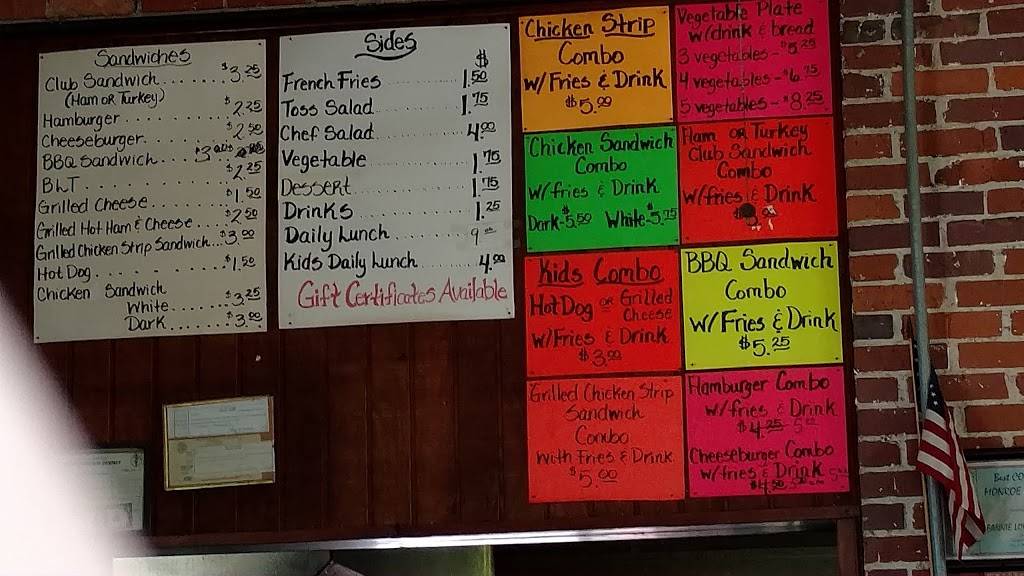 Sandwiches
Club Sandwich..... $3.25
(Ham or Turkey)
Hamburger......... $2.25
Cheeseburger...... $2.50
BBQ Sandwich..... $3.00
BLT............. $2.25
Grilled Cheese...... $1.50
Grilled Hot Ham & Cheese..... $2.50
Grilled Chicken Strip Sandwich... $3.00
Hot Dog........ $1.50
Chicken Sandwich
White...... $3.25
Dark...... $3.00
Sides
$
French Fries....... 1.50
Toss Salad........ 1.75
Chef Salad........ 4.00
Vegetable........ 1.75
Dessert......... 1.75
Drinks......... 1.25
Daily Lunch...... 9
Kids Daily Lunch..... 4.00
Gift Certificates Available
Chicken Strip
Combo
w/ Fries & Drink
$5.00
Vegetable Plate
w/drink & bread
3 vegetables - $5.25
4 vegetables - $6.75
5 vegetables - $8.25
Chicken Sandwich
Combo
w/fries & Drink
Dark $5.50 White $5.75
Ham or Turkey
Club Sandwich
Combo
w/fries & Drink
Kids Combo
Hot Dog or Grilled Cheese
w/Fries & Drink
$3.00
BBQ Sandwich
Combo
w/ Fries & Drink
$5.25
Grilled Chicken Strip
Sandwich
Combo
with Fries & Drink
$5.00
Hamburger Combo
w/fries & Drink
$4.25
Cheeseburger Combo
w/fries & Drink
$4.50
Best
MONROE
FANNIE